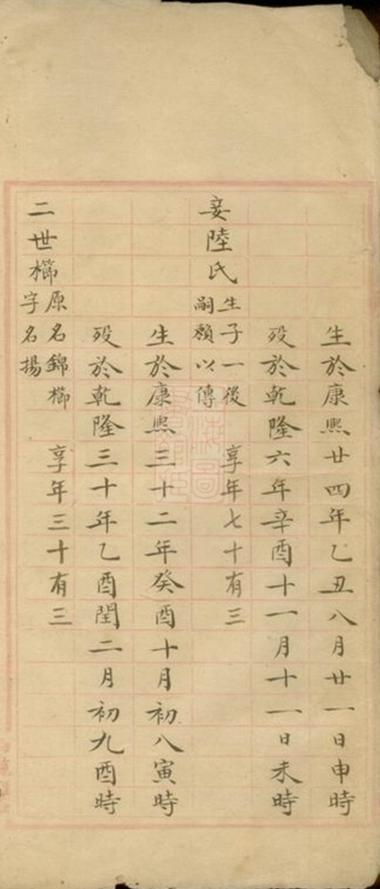 生於康熙廿四年乙丑八月廿一日申時
歿於乾隆六年辛酉十一月十一日未時
妾陸氏
生子一後
嗣賴以傳
享年七十有三
生於康熙三十二年癸酉十月初八寅時
歿於乾隆三十年乙酉閏二月初九酉時
二世櫛
原名錦櫛
字名揚
享年三十有三